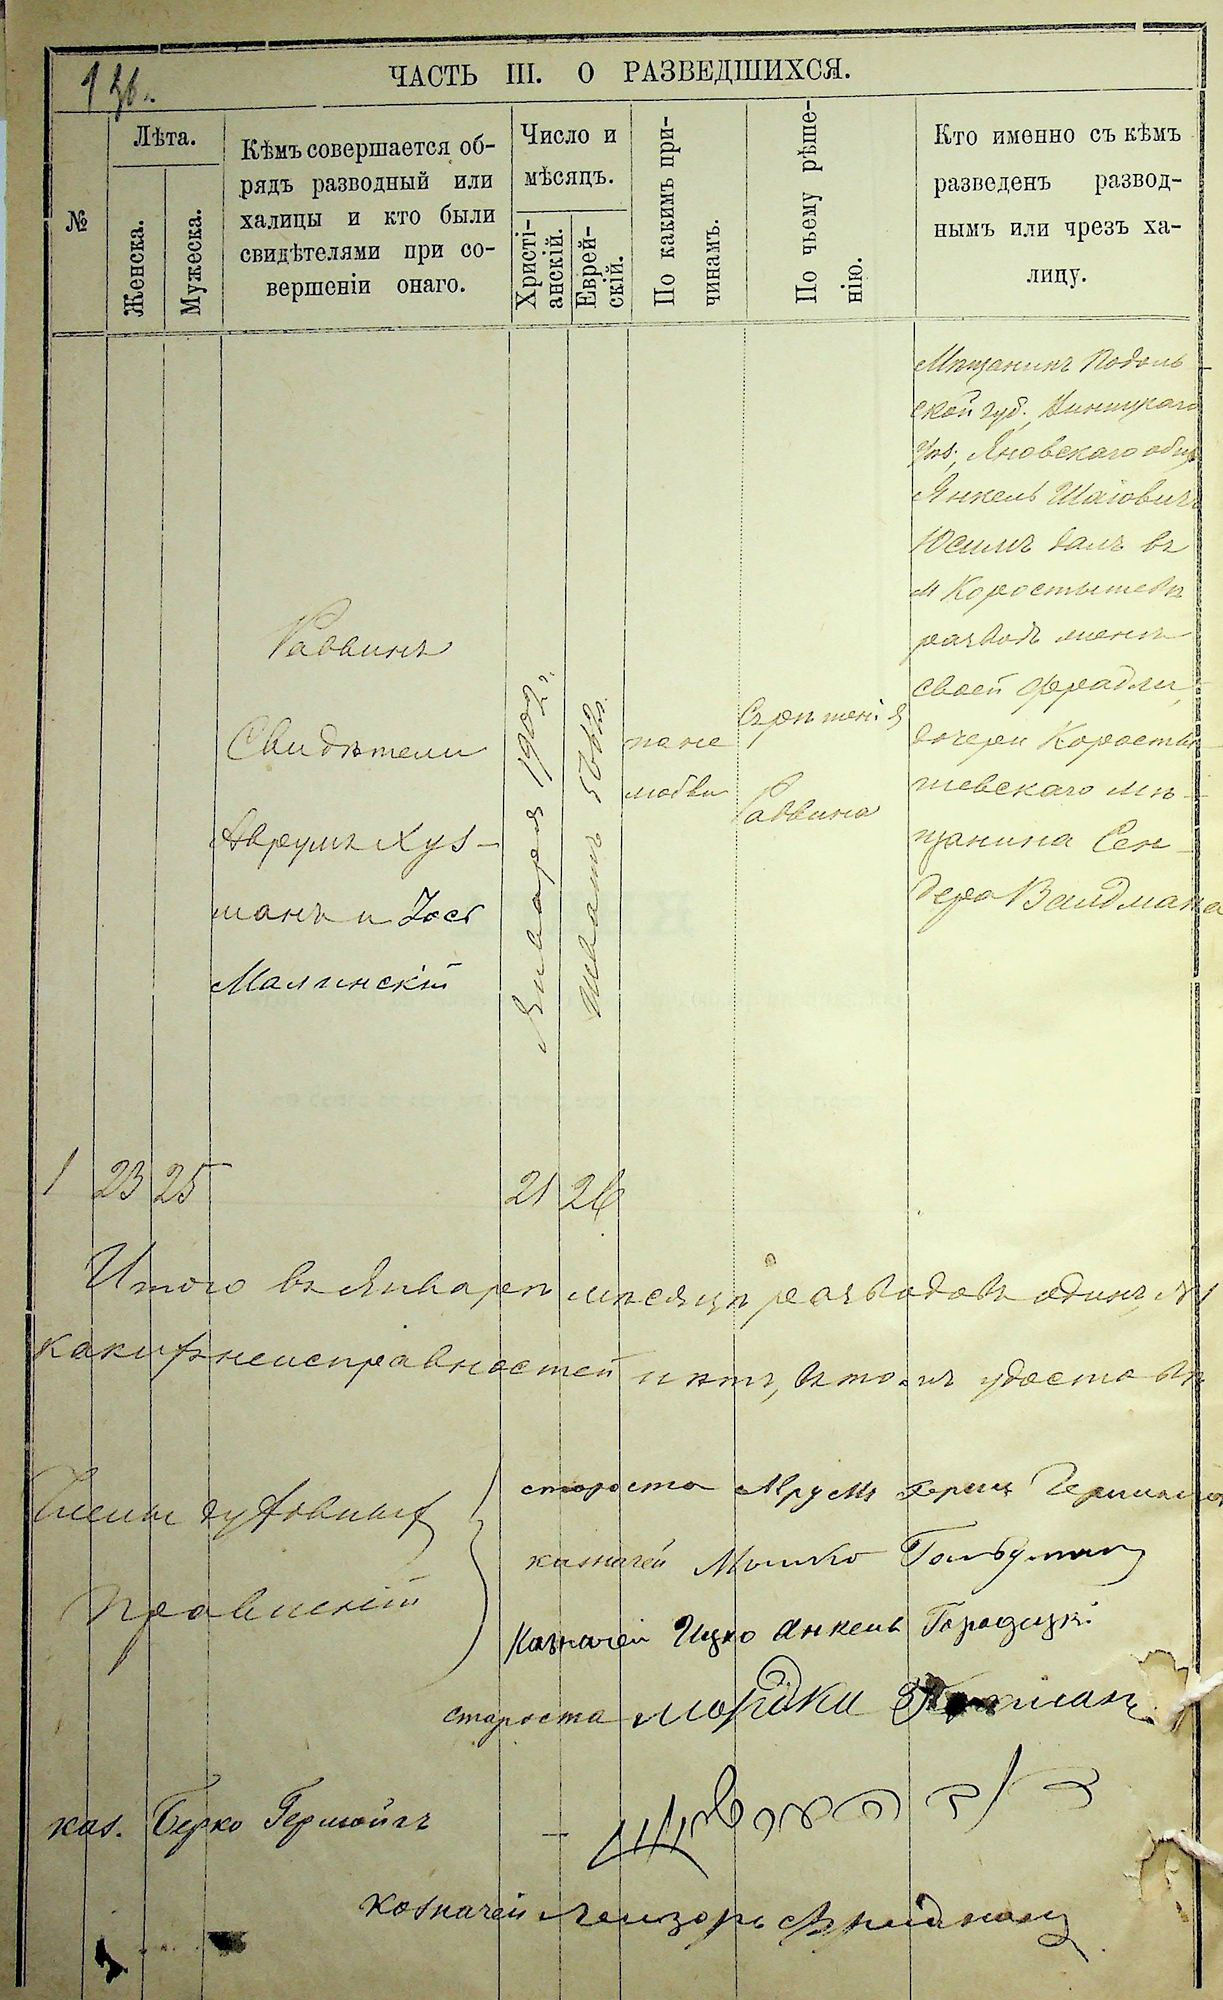 ЧАСТЬ III. О РАЗВЕДШИХСЯ.
№
Лѣта.
Женска.
Мужеска.
Кѣмъ совершается об-
рядъ разводный или
халицы и кто были
свидѣтелями при со-
вершеніи онаго.
Число и
мѣсяцъ.
Христі-
анскій.
Еврей-
скій.
По какимъ при-
чинамъ.
По чьему рѣше-
нію.
Кто именно съ кѣмъ
разведенъ развод-
нымъ или чрезъ ха-
лицу.
1
23
25
Раввинъ
Свидѣтели
Аврумъ Хуз-
манъ и Іось
Малинскій
Января 1902 г.
21
Шватъ 5662 г.
26
по не
любви
Съ рѣшенія
Раввина
Мѣщанинъ Подоль-
ской губ. Виницкаго
уѣз. Яновскаго общ
Янкель Шаіовичъ
Юсимъ далъ въ
м Коростышевѣ
разводъ женѣ
своей Фрадли,
дочери Коросты-
шевскаго мѣ-
щанина Сен-
дера Валдмана
Итого въ Январѣ мѣсяцѣ разводовъ одинъ, Ни
какихъ неисправностей нѣтъ, въ томъ удостовѣ
Члены духовныхъ
Правленій
староста Аврумъ Герш
казначей Мошко Гольдман
Казначей Ицко Янкель Городецкі
староста Мордки
каз. Берко
казначей Лейзоръ Фридман